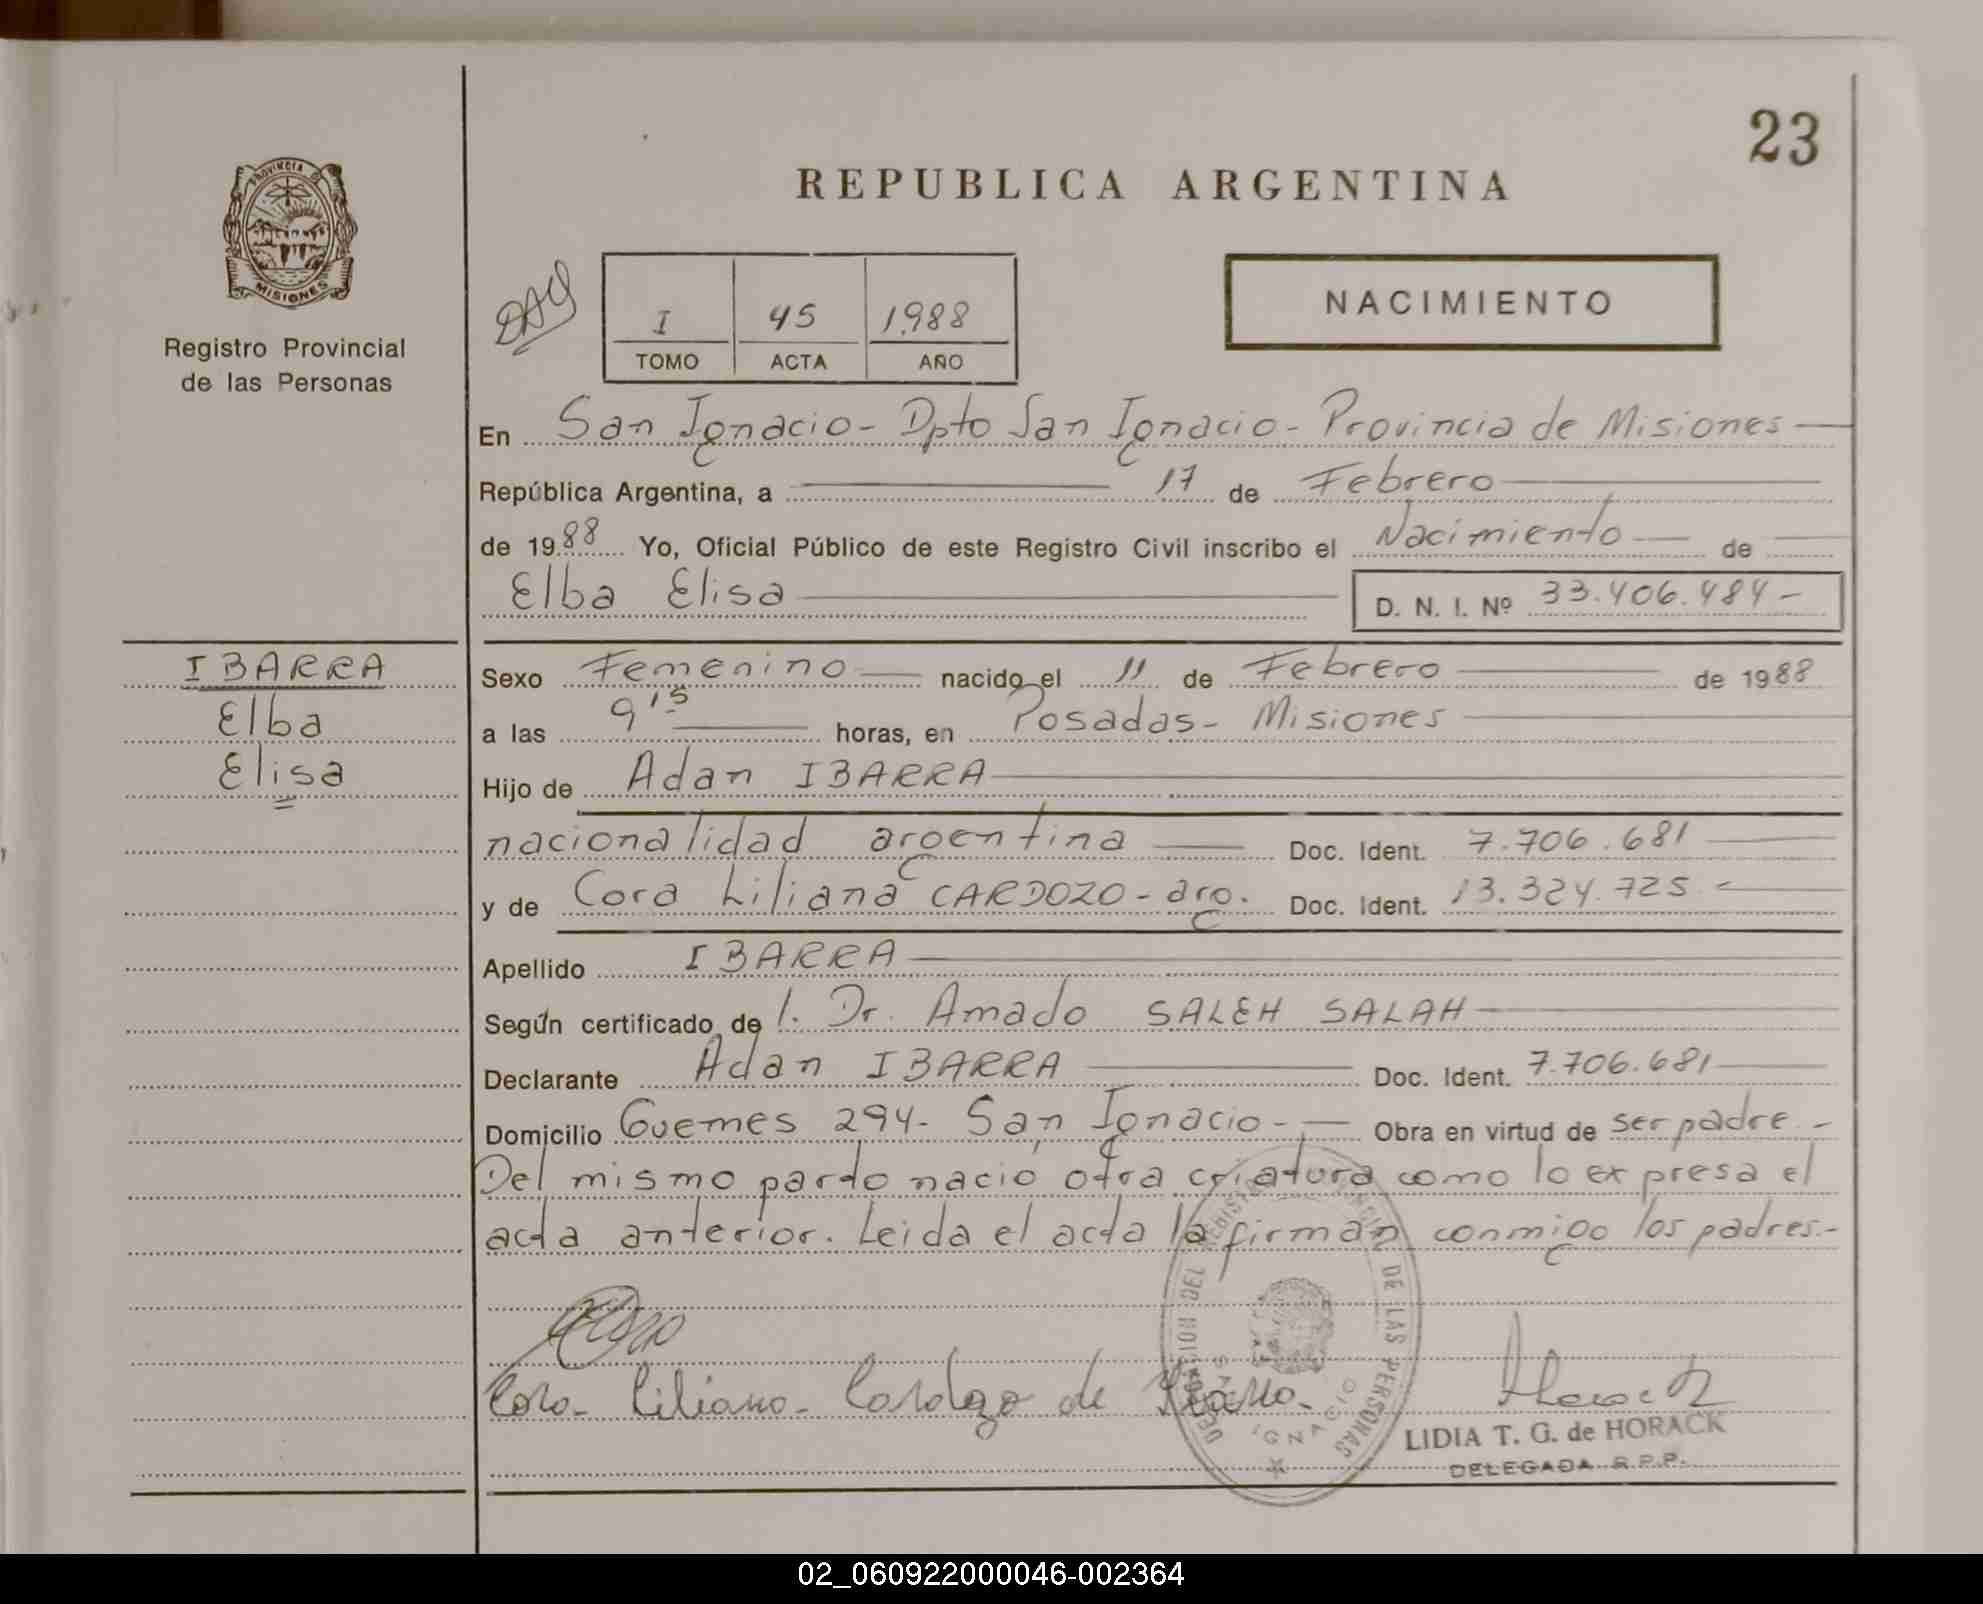 23
REPUBLICA ARGENTINA
PROVINCIA D
MISIONES
Registro Provincial
de las Personas
I 45 1988
TOMO ACTA AÑO
NACIMIENTO
En San Ignacio - Dpto San Ignacio - Provincia de Misiones
República Argentina, a 17 de Febrero
de 1988 Yo, Oficial Público de este Registro Civil inscribo el Nacimiento de
Elba Elisa D. N. I. Nº 33.406.484-
IBARRA
Elba
Elisa
Sexo Femenino nacido el 11 de Febrero de 1988
a las 9 15 horas, en Posadas - Misiones
Hijo de Adan IBARRA
nacionalidad argentina Doc. Ident. 7.706.681
y de Cora Liliana CARDOZO - arg. Doc. Ident. 13.324.725 -
Apellido IBARRA
Según certificado de l. Dr. Amado SALEH SALAH
Declarante Adan IBARRA Doc. Ident. 7.706.681
Domicilio Guemes 294 - San Ignacio - Obra en virtud de ser padre -
Del mismo parto nacio otra criatura como lo expresa el
acta anterior. Leida el acta la firman conmigo los padres.-
Cora Liliana Cardozo de Ibarra
DELEGACION DEL REGISTRO PROVINCIAL DE LAS PERSONAS
SAN IGNACIO
LIDIA T. G. de HORACK
DELEGADA R.P.P.
02_060922000046-002364